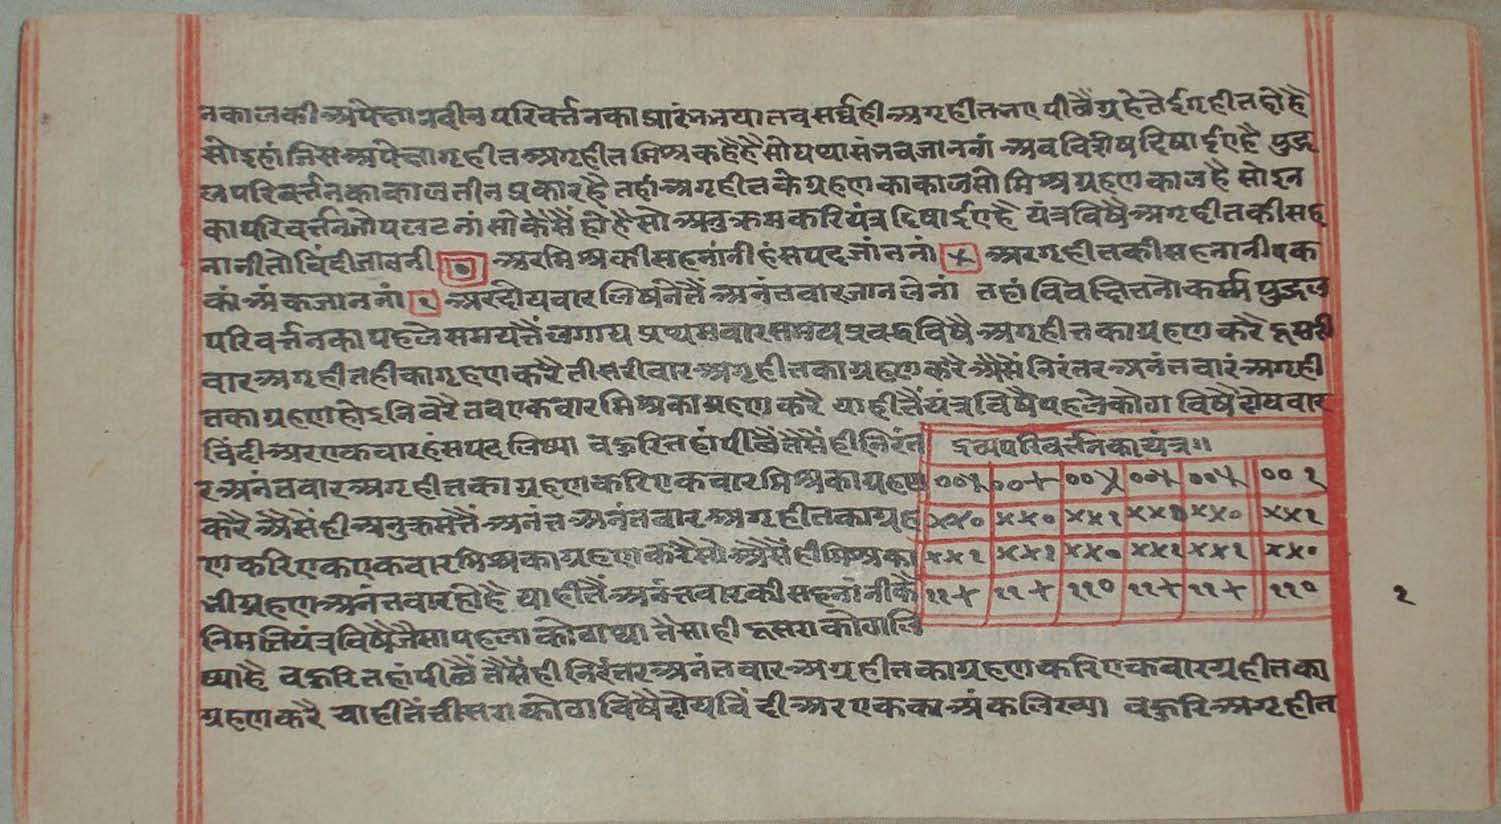 न कालकी अपेक्षा नवीन परिवर्त्तनका प्रारंभ भया तब सर्व्वही अगृहीत भए पीछैं ग्रहे तेई गृहीत हो है
सो इहां जिस अपेक्षा गृहीत अगृहीत मिश्र कहै है सो यथासंभव जाननां अब विशेष दिषाईए है पुद्ग
ल परिवर्त्तनका काल तीन प्रकार है तहां अगृहीत के ग्रहण का काल सो मिश्र ग्रहण काल है सो इन
का परिवर्त्तन जो पलटनां सो कैसैं हो है सो अनुक्रम करि यंत्र द्दिषाईए है यंत्र विषै अगृहीत की सह
नानी तो बिंदी जाननी ० अर मिश्र की सहनांनी हंसपद जांननां × अर गृहीत की सहनानी एक
कां अंक जाननां १ अर दोय वार लिषनेतैं अनंत वार जान लेनां तहां विवक्षित नोकर्म्म पुद्गल
परिवर्त्तनका पहले समयतैं लगाय प्रथम वार समय प्रबद्ध विषै अगृहीत का ग्रहण करै दूसरी
वार अगृहीत ही का गृहण करै तीसरी वार अगृहीत का ग्रहण करै अैसें निरंतर अनंत वार अगृही
त का ग्रहण होइ निवरै तब एक वार मिश्र का ग्रहण करै याहीतैं यंत्र विषै पहले कोठा विषै दोय वार
बिंदी अर एक वार हंसपद लिष्या बहुरि तहां पीछैं तैसैं ही निरंत
र अनंत वार अगृहीत का ग्रहण करि एक वार मिश्र का ग्रहण
करै अैसें ही अनुक्रमतैं अनंत अनंत वार अगृहीत का ग्रह
ण करि एक एक वार मिश्र का ग्रहण करै सो अैसें ही मिश्र का
भी ग्रहण अनंत वार हो है याहीतैं अनंत वार की सहनांनी कै
निमत्ति यंत्र विषै जैसा पहला कोठा था तैसा ही दूसरा कोठा लि
ष्या है बहुरि तहां पीछैं तैसैं ही निरंतर अनंत वार अग्रहीत का ग्रहण करि एक वार ग्रहीत का
ग्रहण करै याहीतैं तीसरा कोठा विषै दोय बिंदी अर एक का अंक लिख्या बहुरि अगृहीत
द्रव्यपरिवर्त्तनका यंत्र॥
००× ००× ००× ००× ००× ००१
××० ××० ××१ ××० ××० ××१
××१ ××१ ××० ××१ ××१ ××०
११× ११× ११० ११× ११× ११०
१